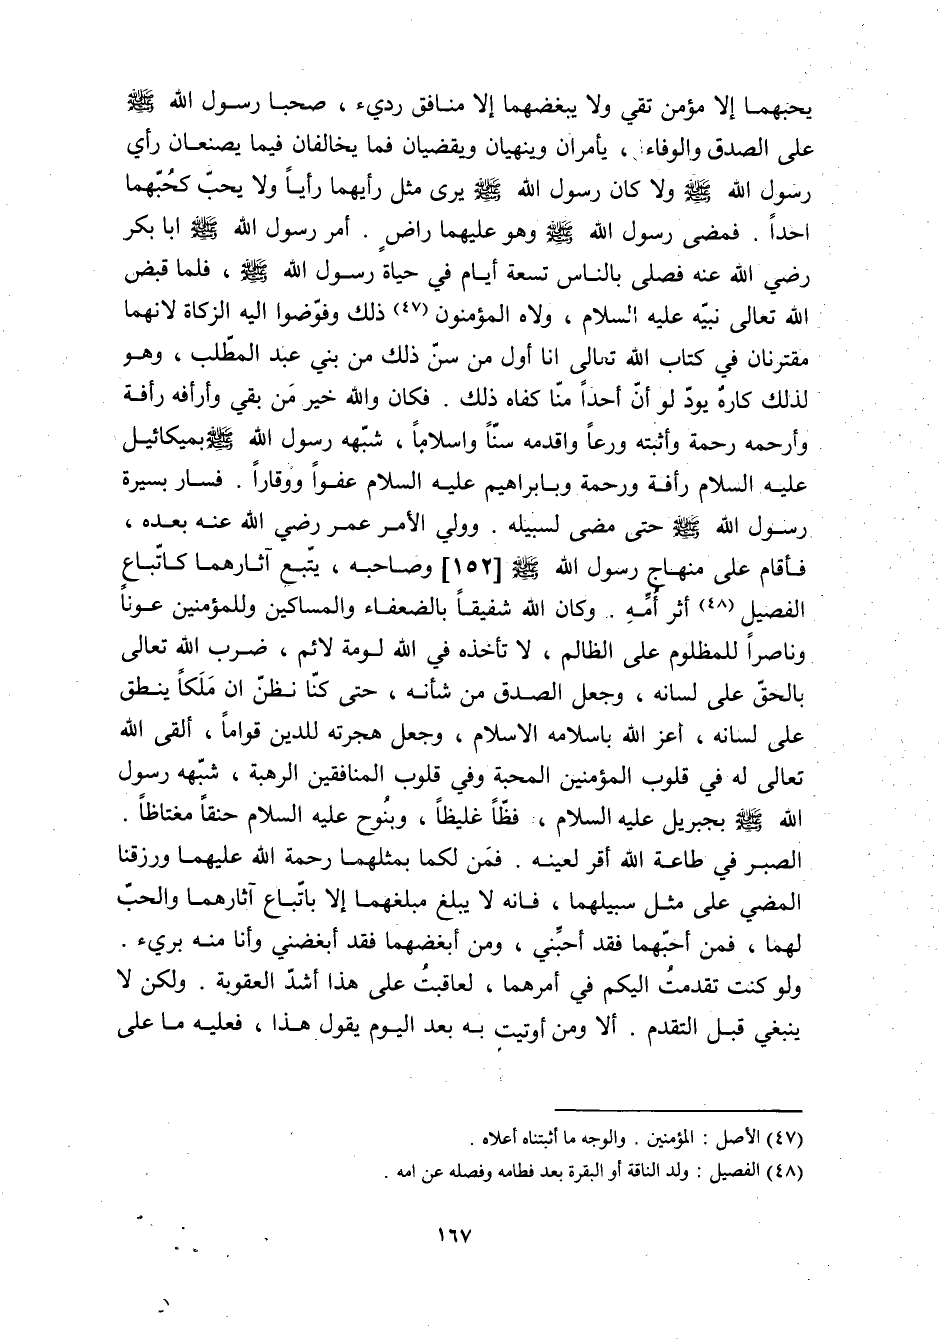 يحبهمـا إلا مؤمن تقي ولا يبغضهما إلا منـافق رديء ، صحبـا رسـول الله ﷺ
على الصدق والوفاء ، يأمران وينهيان ويقضيان فما يخالفان فيما يصنعـان رأي
رسول الله ﷺ ولا كان رسول الله ﷺ يرى مثل رأيهما رأيـاً ولا يحبّ كحُبّهما
احداً . فمضى رسول الله ﷺ وهو عليهما راضٍ . أمر رسول الله ﷺ ابا بكر
رضي الله عنه فصلى بالنـاس تسعة أيـام في حياة رسـول الله ﷺ ، فلما قبض
الله تعالى نبيّه عليه السلام ، ولاه المؤمنون (٤٧) ذلك وفوّضوا اليه الزكاة لانهما
مقترنان في كتاب الله تعالى انا أول من سنّ ذلك من بني عبد المطّلب ، وهـو
لذلك كارهٌ يودّ لو أنّ أحداً منّا كفاه ذلك . فكان والله خير مَن بقي وأرأفه رأفـة
وأرحمه رحمة وأثبته ورعاً واقدمه سنّاً واسلاماً ، شبّهه رسول الله ﷺ بميكائيـل
عليـه السلام رأفـة ورحمة وبـابراهيم عليـه السلام عفـواً ووقاراً . فسـار بسيرة
رسـول الله ﷺ حتى مضى لسبيله . وولي الأمـر عمـر رضي الله عنـه بعـده ،
فـأقام على منهـاج رسول الله ﷺ [١٥٢] وصـاحبـه ، يتّبـع آثـارهمـا كـاتّباعِ
الفصيل (٤٨) أثر أُمّهِ . وكان الله شفيقـاً بالضعفـاء والمساكين وللمؤمنين عـوناً
وناصراً للمظلوم على الظالم ، لا تأخذه في الله لـومة لائم ، ضـرب الله تعالى
بالحقّ على لسانه ، وجعل الصـدق من شأنـه ، حتى كنّا نـظنّ ان مَلَكاً ينـطق
على لسانه ، أعز الله باسلامه الاسلام ، وجعل هجرته للدين قواماً ، ألقى الله
تعالى له في قلوب المؤمنين المحبة وفي قلوب المنافقين الرهبة ، شبّهه رسول
الله ﷺ بجبريل عليه السلام ، فظّاً غليظاً ، وبنُوح عليه السلام حنقاً مغتاظاً .
الصبـر في طاعـة الله أقر لعينـه . فمَن لكما بمثلهمـا رحمة الله عليهمـا ورزقنا
المضي على مثـل سبيلهما ، فـانه لا يبلغ مبلغهمـا إلا باتّبـاع آثارهمـا والحبّ
لهما ، فمن أحبّهما فقد أحبّني ، ومن أبغضهما فقد أبغضني وأنا منـه بريء .
ولو كنت تقدمتُ اليكم في أمرهما ، لعاقبتُ على هذا أشدّ العقوبة . ولكن لا
ينبغي قبـل التقدم . ألا ومن أوتيت بـه بعد اليوم يقول هـذا ، فعليـه مـا على
(٤٧) الأصل : المؤمنين . والوجه ما أثبتناه أعلاه .
(٤٨) الفصيل : ولد الناقة أو البقرة بعد فطامه وفصله عن امه .
١٦٧